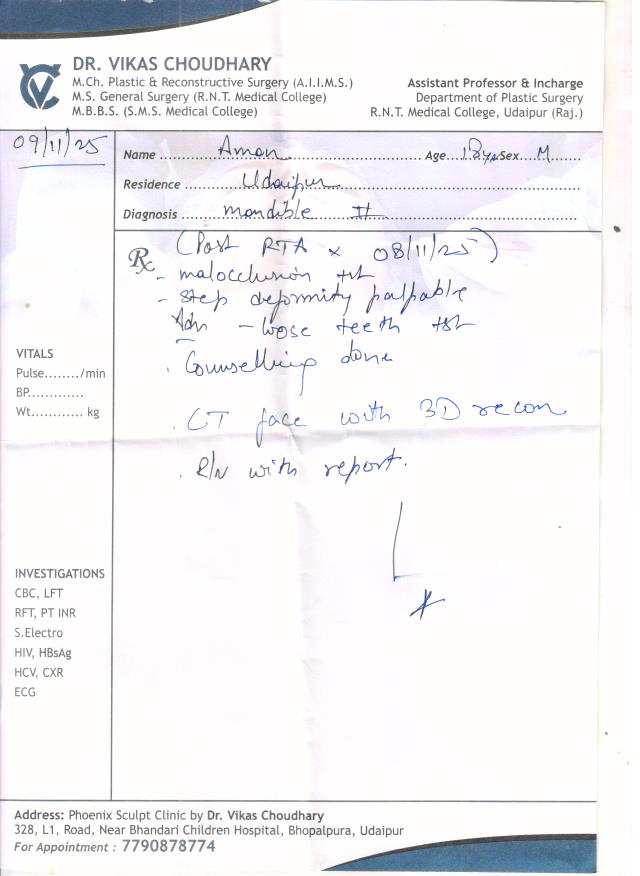 DR. VIKAS CHOUDHARY
M.Ch. Plastic & Reconstructive Surgery (A.I.I.M.S.)
M.S. General Surgery (R.N.T. Medical College)
M.B.B.S. (S.M.S. Medical College)
Assistant Professor & Incharge
Department of Plastic Surgery
R.N.T. Medical College, Udaipur (Raj.)
09/11/25
Name ...... Aman ...... Age ...18 yr Sex ... M ......
Residence ...... Udaipur ......
Diagnosis ...... mandible # ......
Rx (Post RTA x 08/11/25)
- malocclusion
- step deformity palpable
Adv - loose teeth
. Counselling done
. CT face with 3D recon
. R/v with report.
VITALS
Pulse......../min
BP............
Wt............ kg
INVESTIGATIONS
CBC, LFT
RFT, PT INR
S.Electro
HIV, HBsAg
HCV, CXR
ECG
Address: Phoenix Sculpt Clinic by Dr. Vikas Choudhary
328, L1, Road, Near Bhandari Children Hospital, Bhopalpura, Udaipur
For Appointment : 7790878774